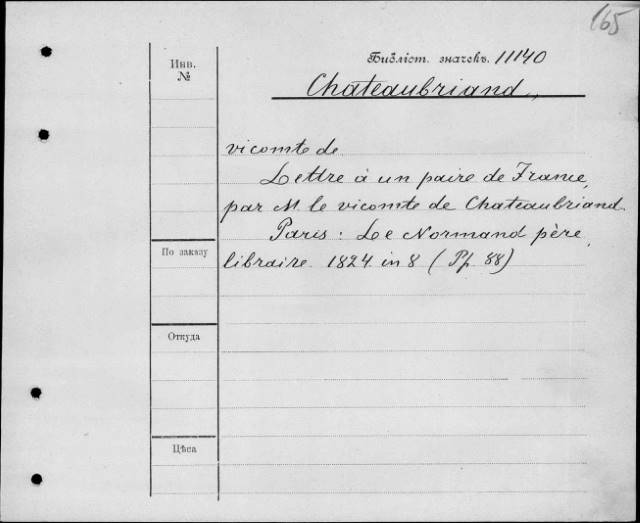 165
Инв.
№
Библіот. значекъ. 11140
Chateaubriand,,
vicomte de
Lettre à un paire de France,
par M. le vicomte de Chateaubriand.
Paris: Le Normand père,
По заказу
libraire 1824 in 8 (Pp. 88)
Откуда
Цѣна